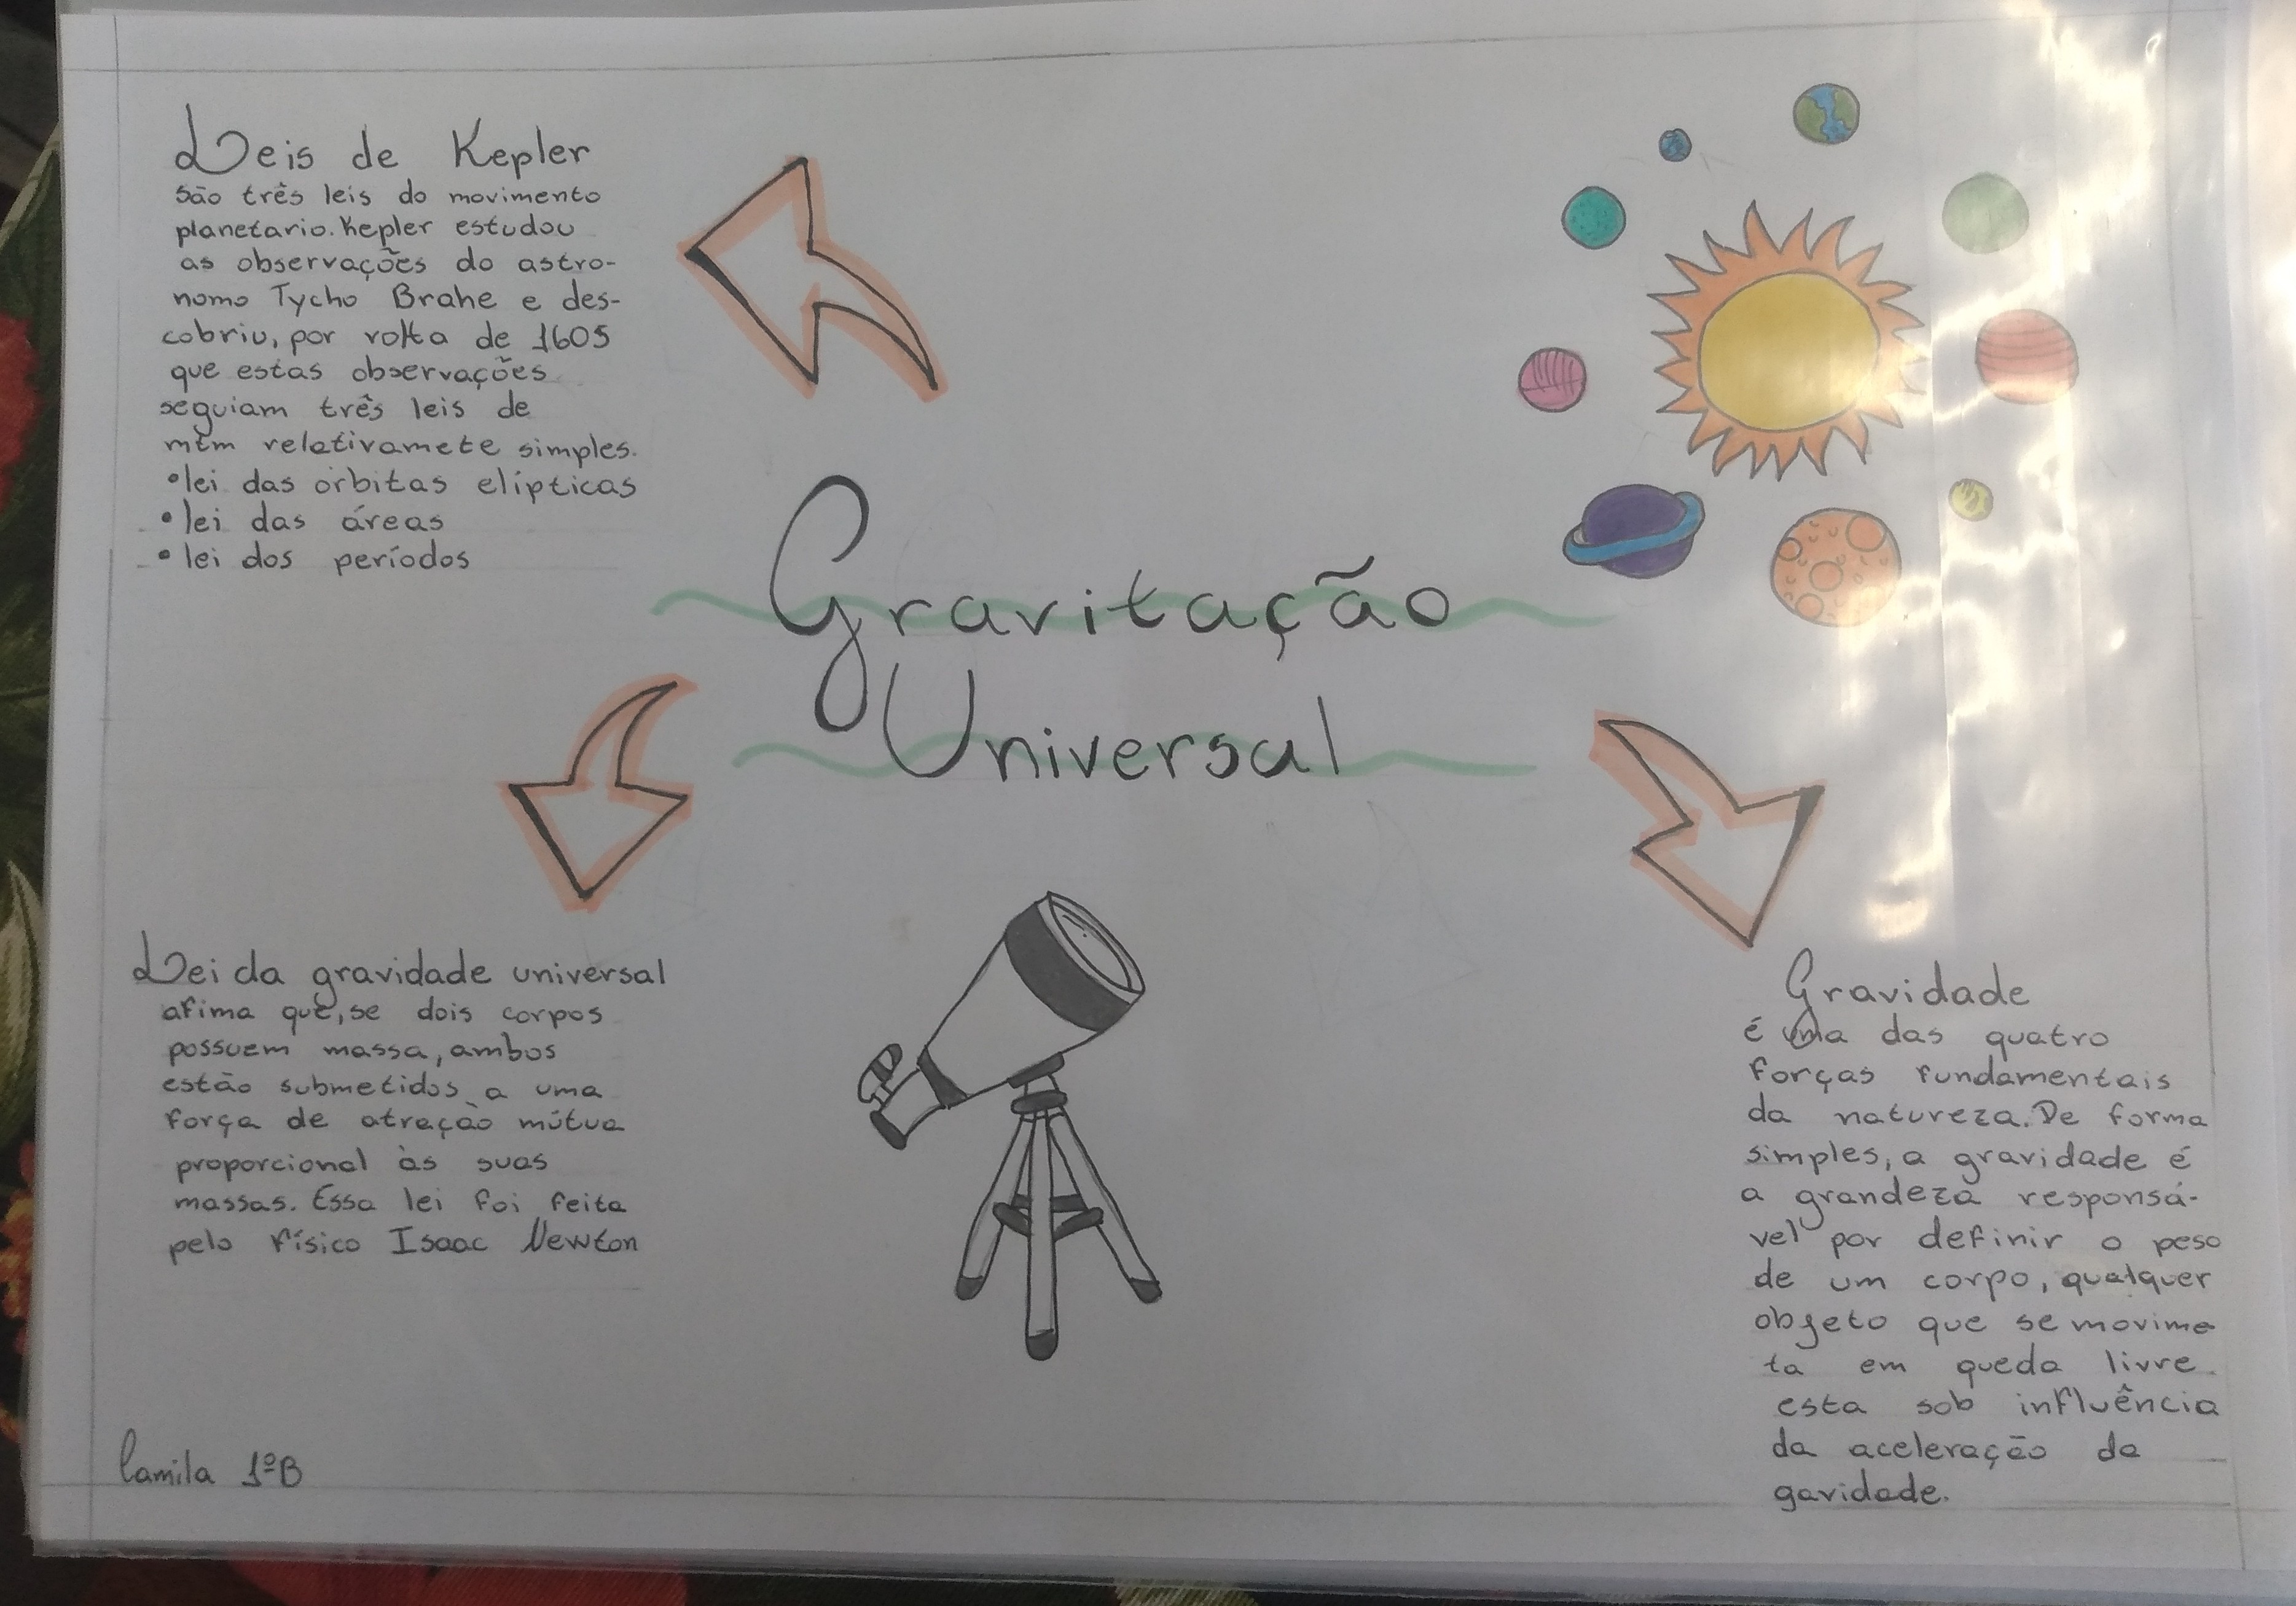 Leis de Kepler
São três leis do movimento
planetario. Kepler estudou
as observações do astro-
nomo Tycho Brahe e des-
cobriu, por volta de 1605
que estas observações
seguiam três leis de
mtm relativamete simples.
•lei das órbitas elípticas
•lei das áreas
•lei dos períodos
Gravitação
Universal
Lei da gravidade universal
afima que, se dois corpos
possuem massa, ambos
estão submetidos a uma
força de atração mútua
proporcional às suas
massas. Essa lei foi feita
pelo físico Isaac Newton
Gravidade
é uma das quatro
forças fundamentais
da natureza. De forma
simples, a gravidade é
a grandeza responsá-
vel por definir o peso
de um corpo, qualquer
objeto que se movime
ta em queda livre.
esta sob influência
da aceleração da
gavidade.
Camila 1ºB